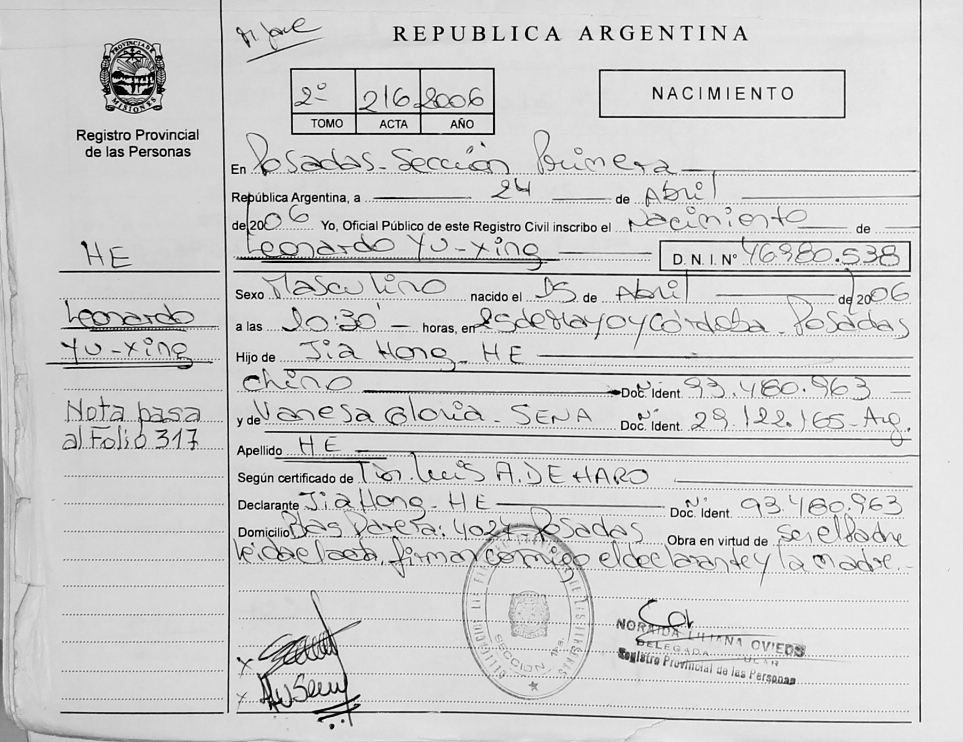 REPUBLICA ARGENTINA
PROVINCIA DE MISIONES
Registro Provincial
de las Personas
2º 216 2006
TOMO ACTA AÑO
NACIMIENTO
En Posadas - Sección Primera
República Argentina, a 24 de Abril
de 2006 Yo, Oficial Público de este Registro Civil inscribo el Nacimiento de
Leonardo Yu-Xing D. N. I. Nº 46380.538
Sexo Masculino nacido el 15 de Abril de 2006
a las 10:30 horas, en 25 de Mayo y Córdoba - Posadas
Hijo de Jia Hong - HE
chino Doc. Ident. Nº 93.480.963
y de Vanesa Gloria - SENA Doc. Ident. Nº 29.122.165 - Arg.
Apellido HE
Según certificado de Dr. Luis A. DE HARO
Declarante Jia Hong - HE Doc. Ident. Nº 93.480.963
Domicilio Blas Parera: 4024 Posadas Obra en virtud de ser el Padre
leida el acta, firman conmigo el declarante y la madre.-
HE
Leonardo
Yu-Xing
Nota pasa
al Folio 317
SECCION 1ra.
NORAIDA LILIANA OVIEDO
DELEGADA
Registro Provincial de las Personas